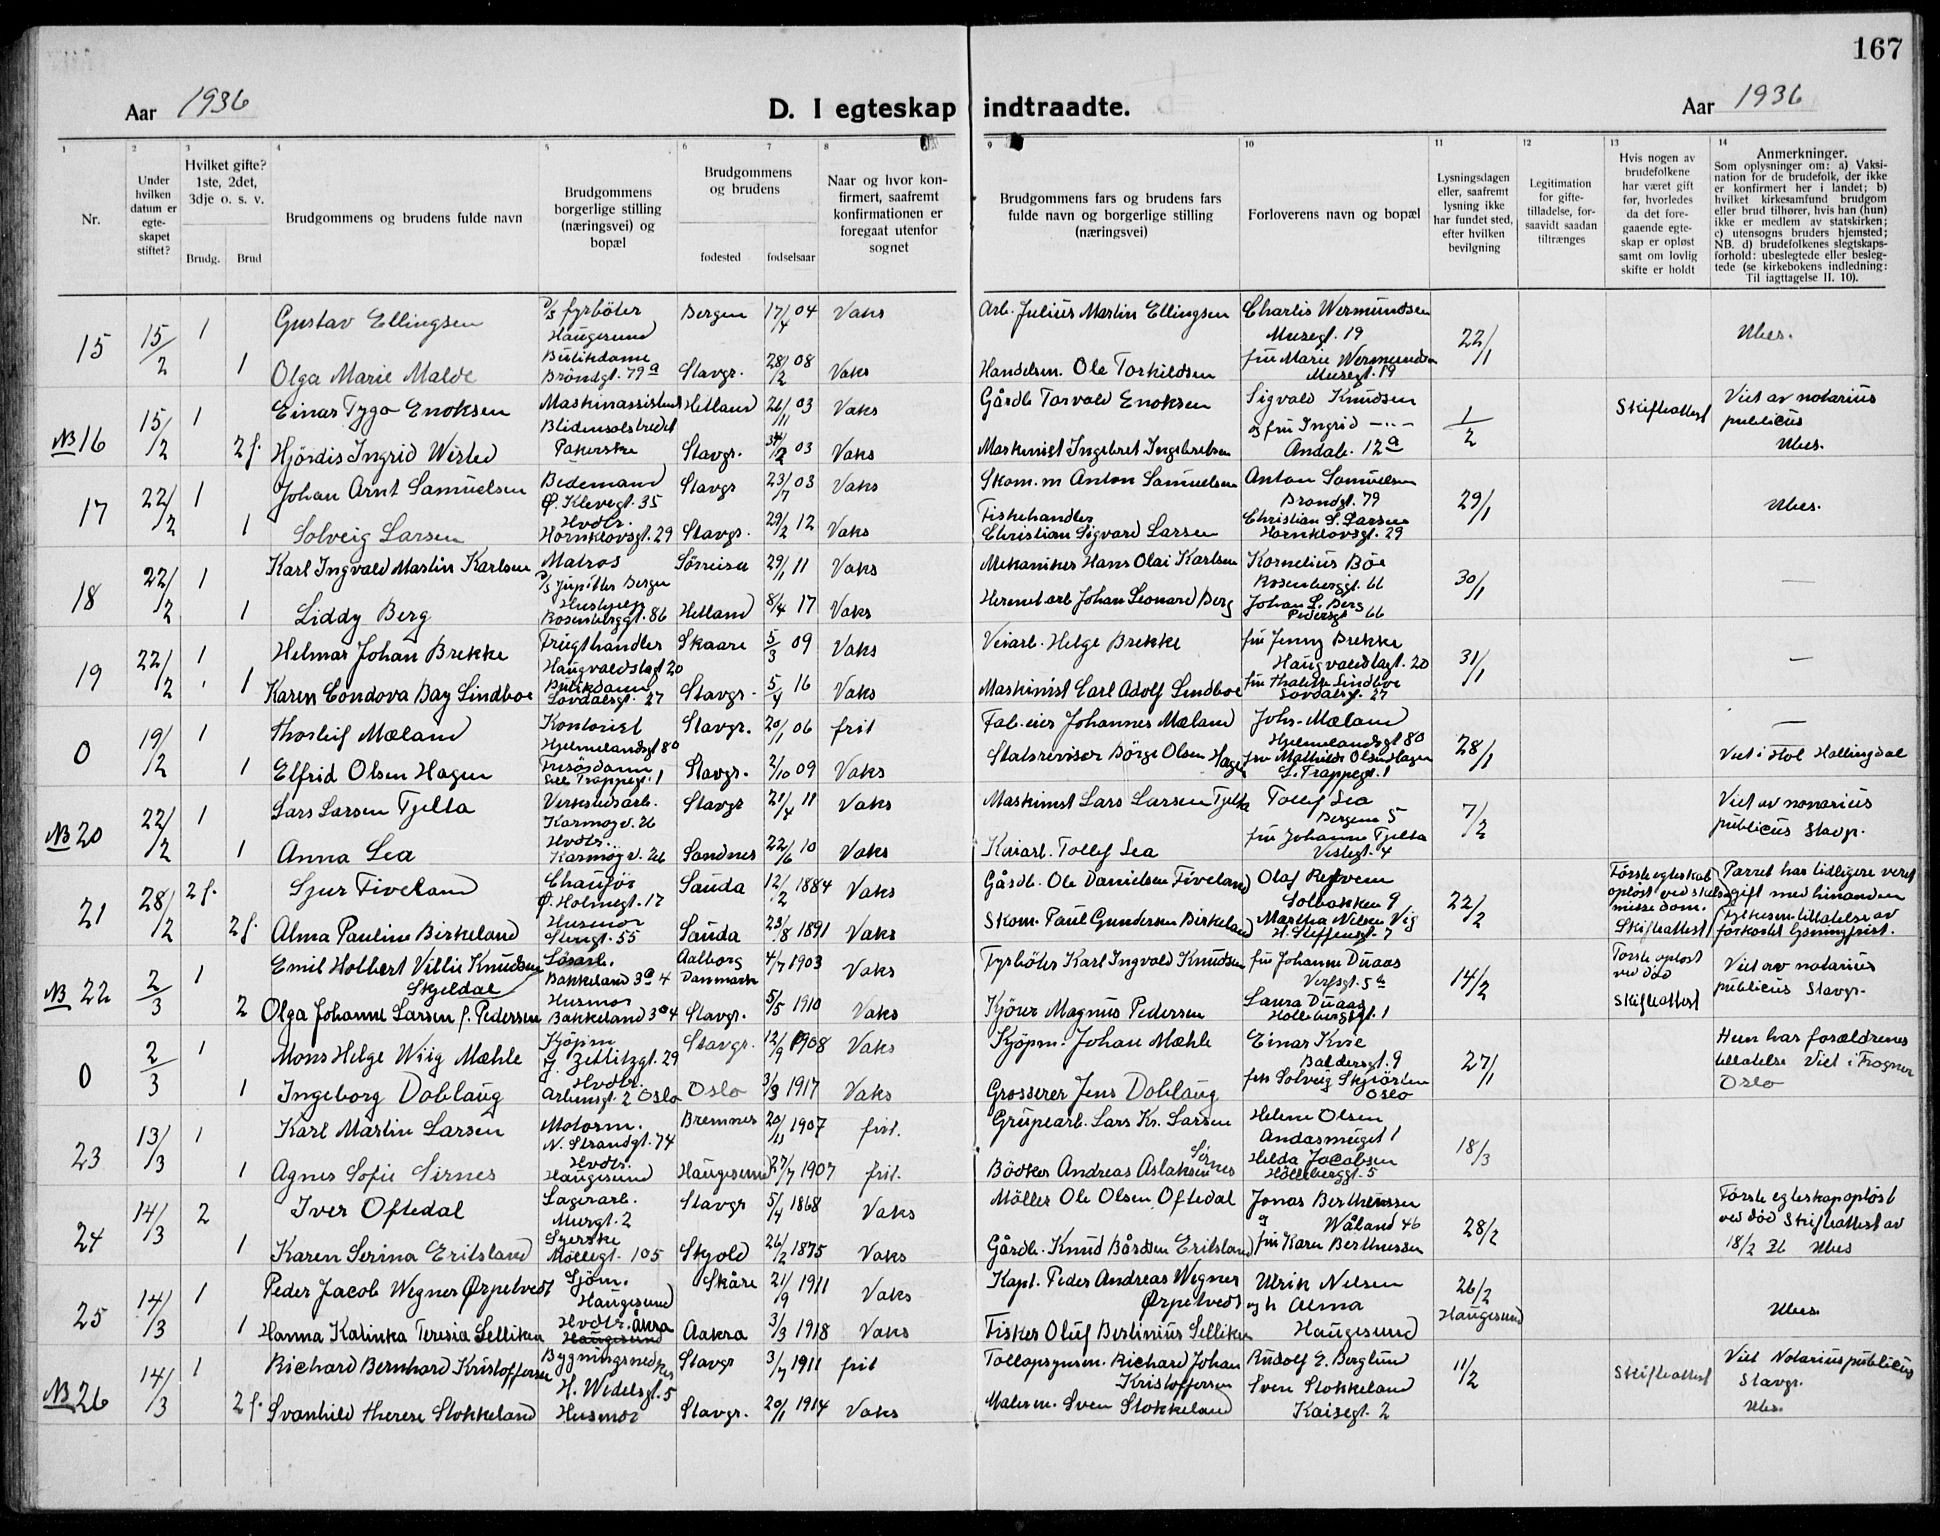 167
Aar 1936
D. I egteskap indtraadte.
Aar 1936
1
2
3
4
5
6
7
8
9
10
11
12
13
14
Nr.
Under hvilken datum er egte-skapet stiftet?
Hvilket gifte? 1ste, 2det, 3dje o. s. v.
Brudg. Brud
Brudgommens og brudens fulde navn
Brudgommens borgerlige stilling (næringsvei) og bopæl
Brudgommens og brudens
fødested fødselsaar
Naar og hvor konfirmert, saafremt konfirmationen er foregaat utenfor sognet
Brudgommens fars og brudens fars fulde navn og borgerlige stilling (næringsvei)
Forloverens navn og bopæl
Lysningsdagen eller, saafremt lysning ikke har fundet sted, efter hvilken bevilgning
Legitimation for giftetilladelse, forsaavidt saadan tiltrænges
Hvis nogen av brudefolkene har været gift før, hvorledes da det foregaaende egteskap er opløst samt om lovlig skifte er holdt
Anmerkninger.
Som oplysninger om: a) Vaksination for de brudefolk, der ikke er konfirmert her i landet; b) hvilket kirkesamfund brudgom eller brud tilhører, hvis han (hun) ikke er medlem av statskirken; c) utensogns bruders hjemsted; NB. d) brudefolkenes slegtskapsforhold: ubeslegtede eller beslegtede (se kirkebokens indledning: Til iagttagelse II. 10).
15 15/2 1 Gustav Ellingsen D/S fyrböter Haugesund Bergen 17/4 04 Vaks Arb. Julius Martin Ellingsen Charlis Wermundsen Musegt. 19 22/1 Ubes.
1 Olga Marie Malde Butikdame Bröndgt. 79a Stavgr. 28/2 08 Vaks Handelsm. Ole Torkildsen fru Marie Wermundsen Musegt. 19
NB 16 15/2 1 Einar Tygo Enoksen Maskinassistent Hetland 26/11 03 Vaks Gårdb Torvald Enoksen Sigvald Knudsen 1/2 Skifteattest Viet av notarius publicus
2 f. Hjördis Ingrid Wisted Pakerske Stavgr. 03 Vaks Maskinist Ingebret Ingebretsen og fru Ingrid -"- Andab. 12a Ubes.
17 22/2 1 Johan Arnt Samuelsen Bedemand Ø. Klevegt. 35 Stavgr 23/7 03 Vaks Skom. m Anton Samuelsen Anton Samuelsen Brøndgt. 79 29/1 Ubes.
1 Solveig Larsen Hvdtr. Hornklovsgt. 29 Stavgr. 29/2 12 Vaks Fiskehandler Christian Sigvard Larsen Christian S. Larsen Hornklovsgt. 29
18 22/2 1 Karl Ingvald Martin Karlsen Matros D/S Jupiter Bergen Sörreisa 29/1 11 Vaks Mekaniker Hans Olai Karlsen Kornelius Böe Rosenberggt. 66 30/1 —
1 Liddy Berg Hushjelp Rosenberggt. 86 Hetland 8/4 17 Vaks Hermetarb Johan Leonard Berg Johan L. Berg Pedersgt 66
19 22/2 1 Helmar Johan Brekke Frugthandler Haugvaldstagt 20 Skaare 5/3 09 Vaks Veiarb. Helge Brekke fru Jenny Brekke Haugvaldstagt. 20 31/1 —
1 Karen Condova Bay Lindboe Butikdame Lövdalsgt. 27 Stavgr. 5/4 16 Vaks Maskinist Carl Adolf Lindboe fru Lindboe Lövdalsgt. 27
0 19/2 1 Thorleif Mæland Kontorist Hjelmelandsgt 80 Stavgr. 20/1 06 frit Fab. eier Johannes Mæland Johs. Mæland Hjelmelandsgt 80 28/1 —
1 Elfrid Olsen Hagen Frisördame Lille Trappegt. 1 Stavgr. 2/10 09 Vaks Statsrevisor Börge Olsen Hagen fru Mathilde Olsen Hagen L. Trappegt. 1 Viet i Hol Hallingdal
NB 20 22/2 1 Lars Larsen Tjelta Verkstedsarb. Karmøyv. 26 Stavgr 21/4 11 Vaks Maskinist Lars Larsen Tjelta Tollef Lea 5 7/2 Viet av nonarius publicus Stavgr.
1 Anna Lea Hvdtr. Karmøyv. 26 Sandnes 22/6 10 Vaks Tollef Lea fru Johanne Tjelta Vestegt. 4
21 28/2 2 f. Sjur Fiveland Chauför Ø. Holmegt. 17 Sauda 12/2 1884 Vaks Gårdb. Ole Danielsen Fiveland Olaf Solbakken 9 22/2 Förste egteskab oplöst ved skilsmisse dom. Parret har tidligere veret gift med hinanden
2 f. Alma Pauline Birkeland Husmor Stengt. 55 Sauda 23/8 1891 Vaks Skom. Paul Gundersen Birkeland Martha Nilsen Vig H. Steffensgt. 7 Skifteattest fylkesm. tillatelse av forkortet lysningfrist.
NB 22 2/3 1 Emil Holbert Villie Knudsen Skjeldal Løsarb. Bakkeland 3a 4 Aalborg Danmark 4/7 1903 Vaks Fyrböter Karl Ingvald Knudsen fru Johanne Duaas Verfsgt. 5b 14/2 Förste oplöst ved död Viet av notarius publicus Stavgr.
2 Olga Johanne Larsen f. Pedersen Husmor Bakkeland 3a 4 Stavgr. 5/5 1910 Vaks Kjörer Magnus Pedersen Laura Duaas Holbergsgt. 1 Skifteattest
0 2/3 1 Mons Helge Wiig Mæhle Kjöpm. J. Zetlitzgt. 29 Stavgr. 12/9 1908 Vaks Kjöpm. Johan Mæhle Einar Kvie Baldersgt. 9 27/1 Hun har foreldrenes tillatelse Viet i Frogner Oslo
1 Ingeborg Doblaug Hvdtr. Arbinsgt. 2 Oslo Oslo 3/3 1917 Vaks Grosserer Jens Doblaug frk Solveig Skjörten Oslo
23 13/3 1 Karl Martin Larsen Motorm. N. Strandgt. 74 Bremnes 20/11 1907 frit. Grubearb. Lars Kr. Larsen Helene Olsen Andasmuget 1 18/3
1 Agnes Sofie Sirnes Hvdtr. Haugesund Haugesund 27/7 1907 frit. Bödker Andreas Aslaksen Sirnes Hilda Jacobsen Holberggt. 5
24 14/3 2 Iver Oftedal Lagerarb. Murgt. 2 Stavgr 5/4 1868 Vaks Möller Ole Olsen Oftedal Jonas Berthenssen Wåland 46 28/2 Förste egteskap oplöst ved död Skifteattest av 18/2 36 Ubes
1 Karen Serina Eritsland Syerske Møllegt. 105 Skjold 26/2 1875 Vaks Gårdb. Knud Bårdsen Eritsland og fru Karen Berthenssen
25 14/3 1 Peder Jacob Wegner Ørpetvedt Sjöm. Haugesund Skåre 21/9 1911 Vaks Kapt. Peder Andreas Wegner Ørpetvedt Ulrik Nilsen 26/2 Haugesund Ubes.
1 Hanna Katinka Teresia Selliken Hvdtr. Åkra Haugesund Aakra 3/3 1918 Vaks Fisker Oluf Bertinius Selliken og h Alma Haugesund
NB 26 14/3 1 Richard Bernhard Kristoffersen Bygningssnedker H. Wedelsgt. 5 Stavgr 3/7 1911 frit Tollopsynsm. Richard Johan Kristoffersen Rudolf E. Berglund 11/2 Skifteattest Viet Notarius publicus Stavgr.
2 f. Svanhild Therese Stokkeland Husmor Stavgr. 20/1 1914 Vaks Malerm. Sven Stokkeland Sven Stokkeland Kaisegt. 2 Ubes.